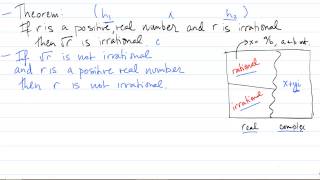 - Theorem. (h₁ x h₂)
If r is a positive, real number and r is irrational
then √r is irrational c
- If √r is not irrational
and r is a positive real number
then r is not irrational.
→ x = a/b, a,b int.
rational
irrational
x+yi
real complex